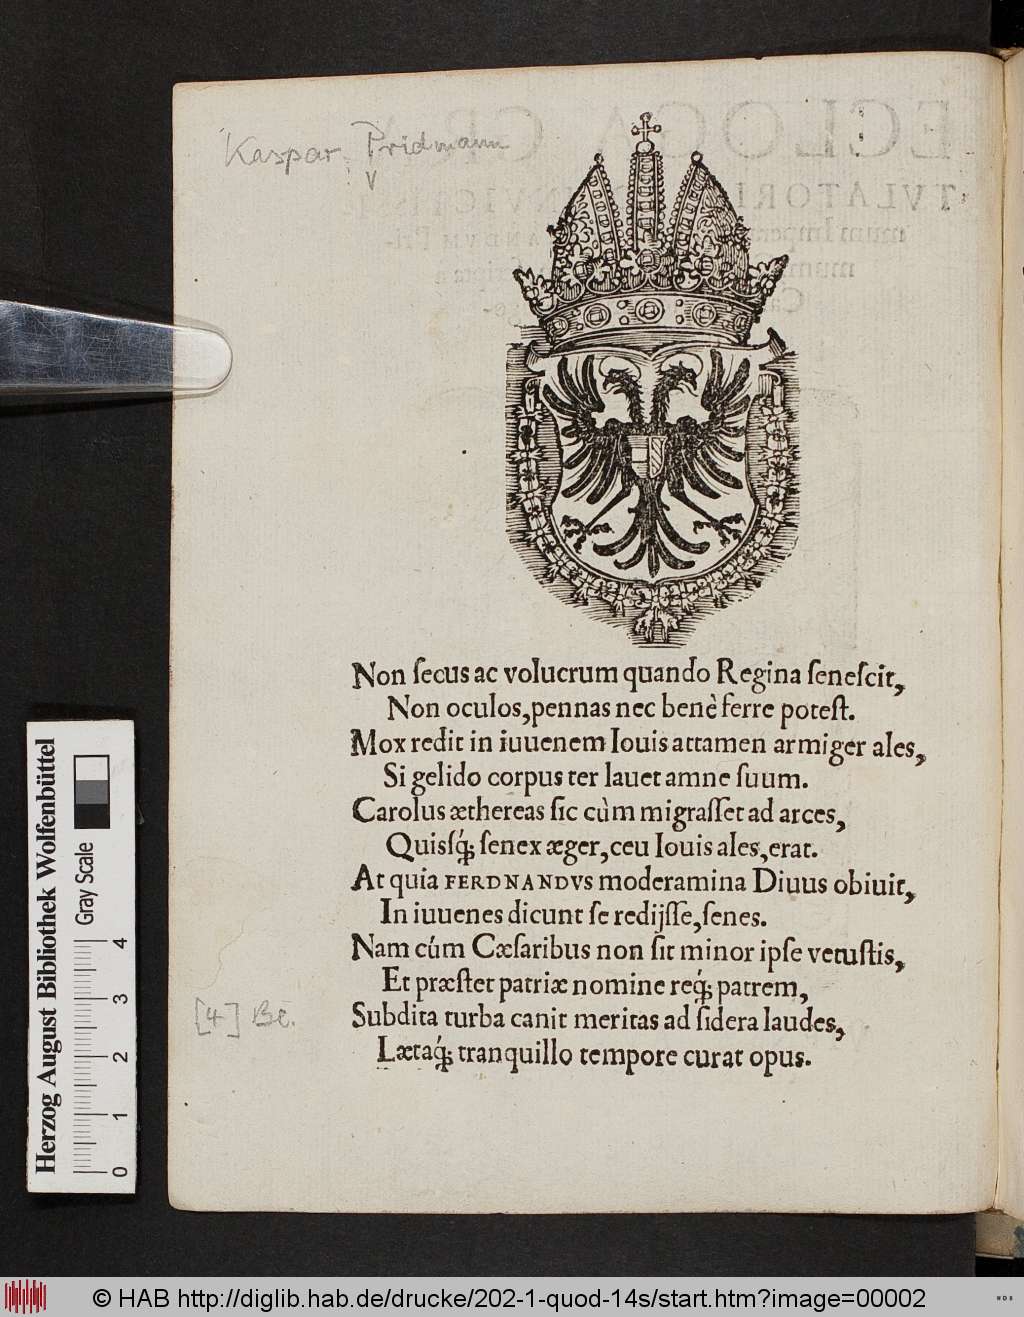 Kaspar Pridmann
Non ſecus ac volucrum quando Regina ſeneſcit,
Non oculos, pennas nec benè ferre poteſt.
Mox redit in iuuenem Iouis attamen armiger ales,
Si gelido corpus ter lauet amne ſuum.
Carolus æthereas ſic cùm migraſſet ad arces,
Quisq́; ſenex æger, ceu Iouis ales, erat.
At quia FERDNANDVS moderamina Diuus obiuit,
In iuuenes dicunt ſe redijſſe, ſenes.
Nam cúm Cæſaribus non ſit minor ipſe vetuſtis,
Et præſtet patriæ nomine req́; patrem,
Subdita turba canit meritas ad ſidera laudes,
Lætaq́; tranquillo tempore curat opus.
[4] Bl.
Herzog August Bibliothek Wolfenbüttel
Gray Scale
0 1 2 3 4
© HAB http://diglib.hab.de/drucke/202-1-quod-14s/start.htm?image=00002